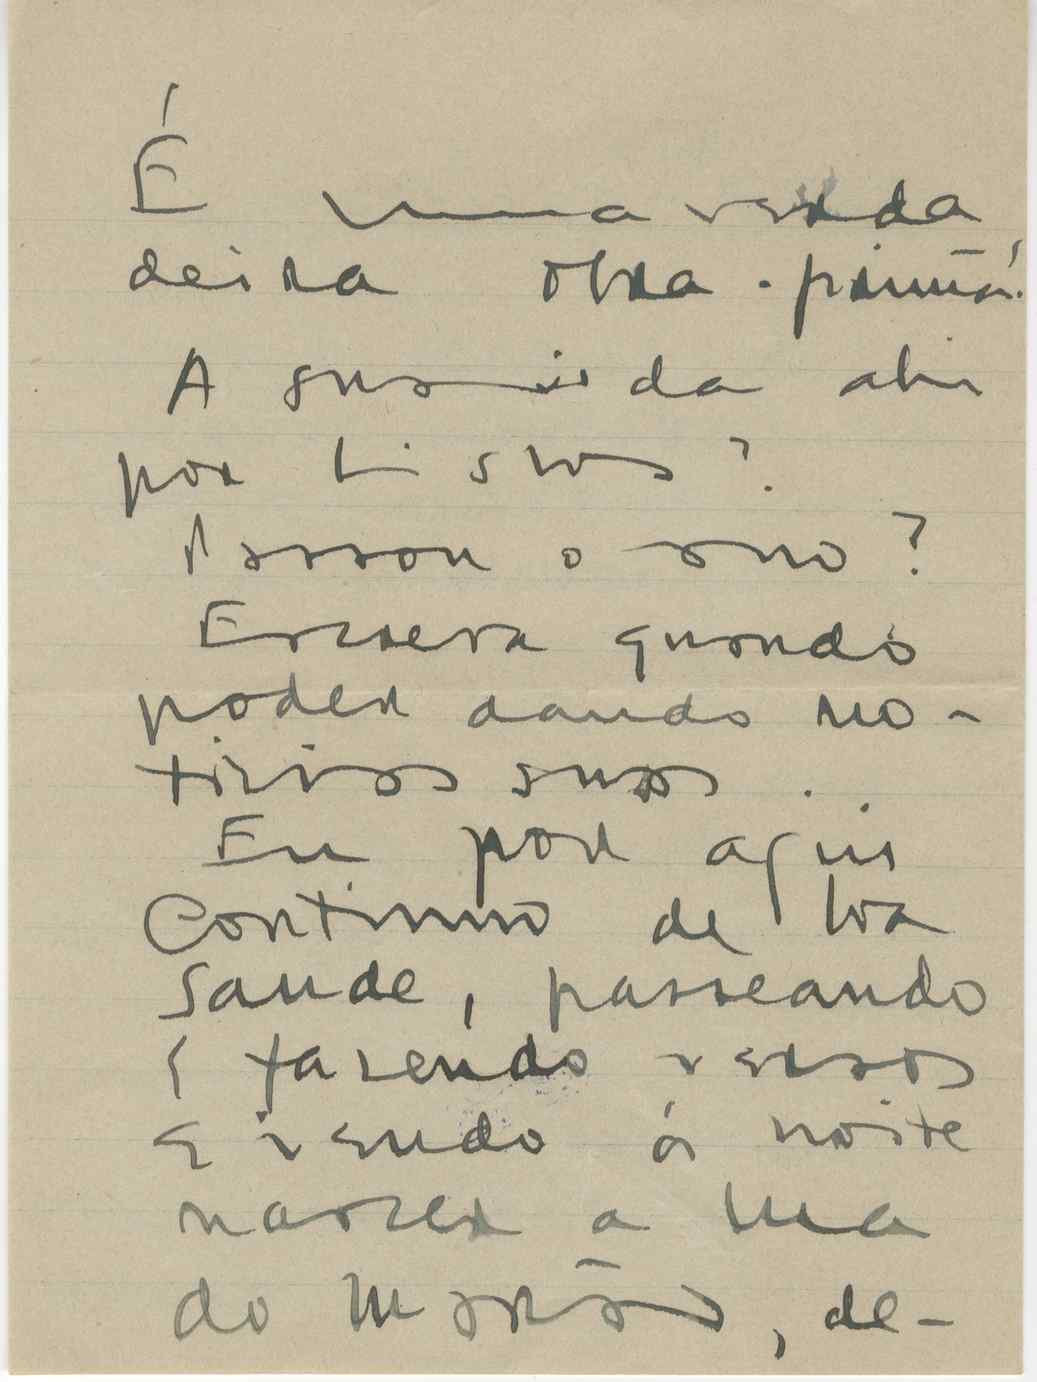 É uma verda
deira obra-prima!
A sua vida ahi
por Lisboa?
Passou o ano?
Escreva quando
poder dando no-
ticias suas.
Eu por aqui
continuo de boa
saude, passeando
e fazendo versos
e vendo á noite
nascer a lua
do Marão, de-